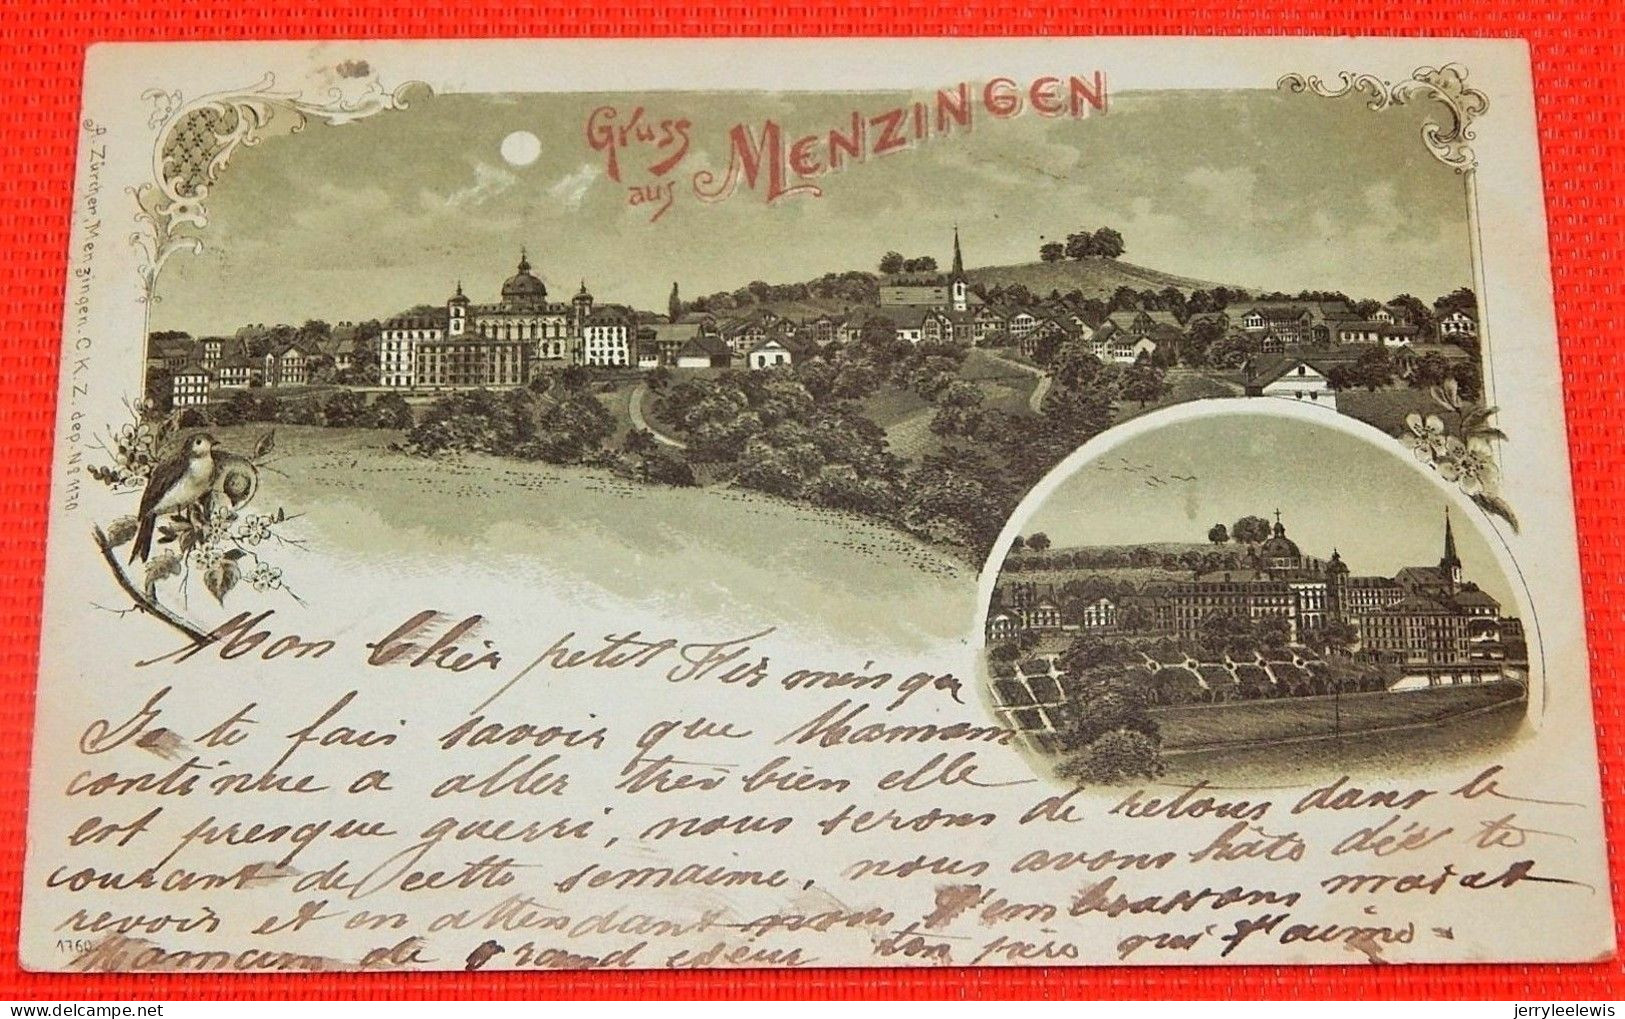 Gruss
aus MENZINGEN
A. Zürcher, Menzingen. C. K. Z. dep. No 1170
Mon Cher petit Firmin
Je te fais savoir que Maman
continue a aller très bien elle
est presque guerri, nous serons de retour dans le
courant de cette semaine, nous avons hâte dée te
revoir et en attendant nous t'embrassons moi et
Maman de grand cœur ton père qui t'aime.
1760
jerryleelewis